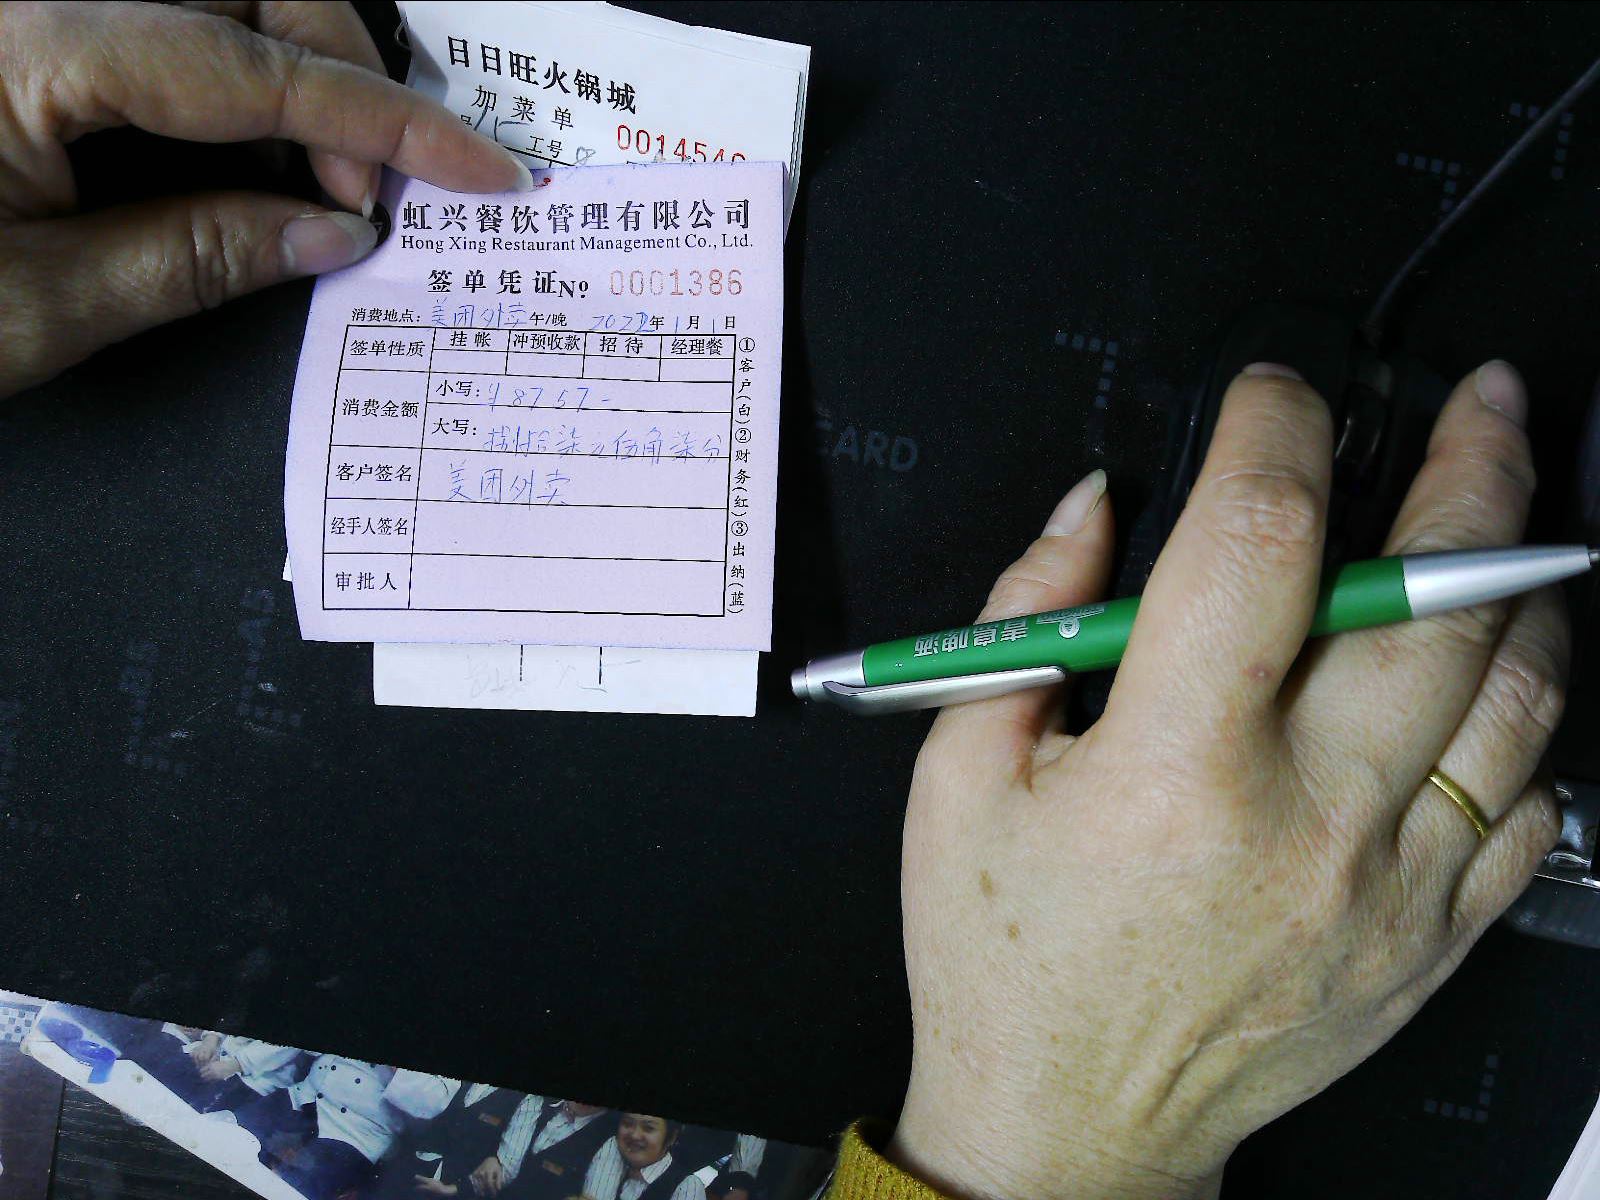 日日旺火锅城
加菜单
号 15 工号 8 001454
虹兴餐饮管理有限公司
Hong Xing Restaurant Management Co., Ltd.
签单凭证 No: 0001386
消费地点: 美团外卖 午/晚 2022年1月1日
签单性质 挂帐 冲预收款 招待 经理餐
消费金额
小写: ¥ 87 57 -
大写: 捌拾柒元伍角柒分
客户签名 美团外卖
经手人签名
审批人
①客户(白)②财务(红)③出纳(蓝)
CARD
青岛啤酒